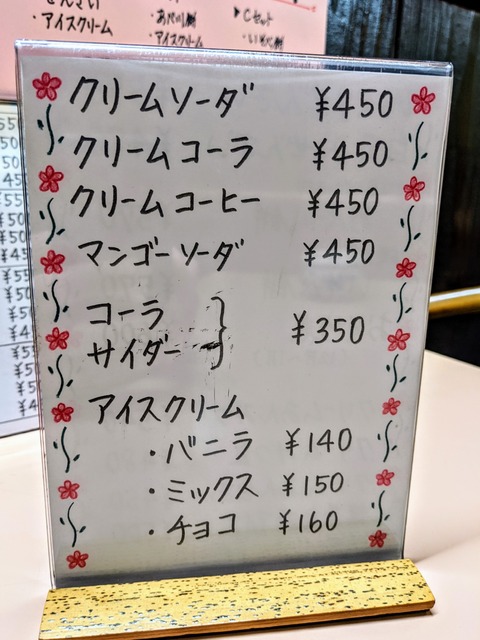 ・アイスクリーム
・アイスクリーム
▶Cセット
クリームソーダ ¥450
クリームコーラ ¥450
クリームコーヒー ¥450
マンゴーソーダ ¥450
コーラ
サイダー } ¥350
アイスクリーム
・バニラ ¥140
・ミックス ¥150
・チョコ ¥160